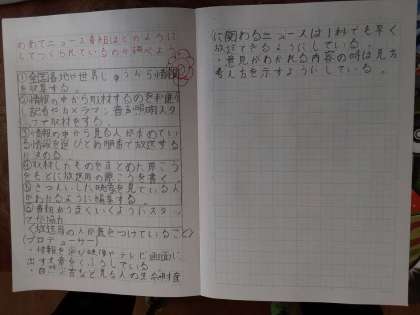 めあてニュース番組はどのように
してつくられているのか調べよう
①全国各地や世界じゅうから情報
を収集する。
②情報の中から取材するのを
記者やカメラマン、音声照明スタ
ッフで取材をする。
③情報の中から見る人が求めてい
る情報を選びどの順番で放送する
か決める。
④取材したものをまとめた原こう
をもとに放送用の原こうを書く
⑤さつえいした映像を見ている人
もわかるように編集する。
⑥番組がうまくいくようにスタッ
フが協力
〈放送局の人が気をつけていること〉
(プロデューサー)
・情報を選び映像やテレビ画面に
出す文章をくふうしている。
・自然災害など見る人の生命財産
に関わるニュースは1秒でも早く
放送できるようにしている。
・意見がわかれる内容の時は見方
考え方を示すようにしている。